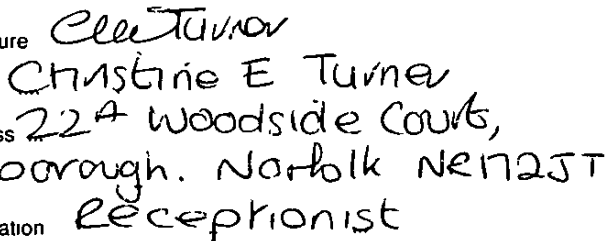 ure Clee Turner
Christine E Turner
ss 22A Woodside Court,
oorough. Norfolk NE172JT
ation Receptionist